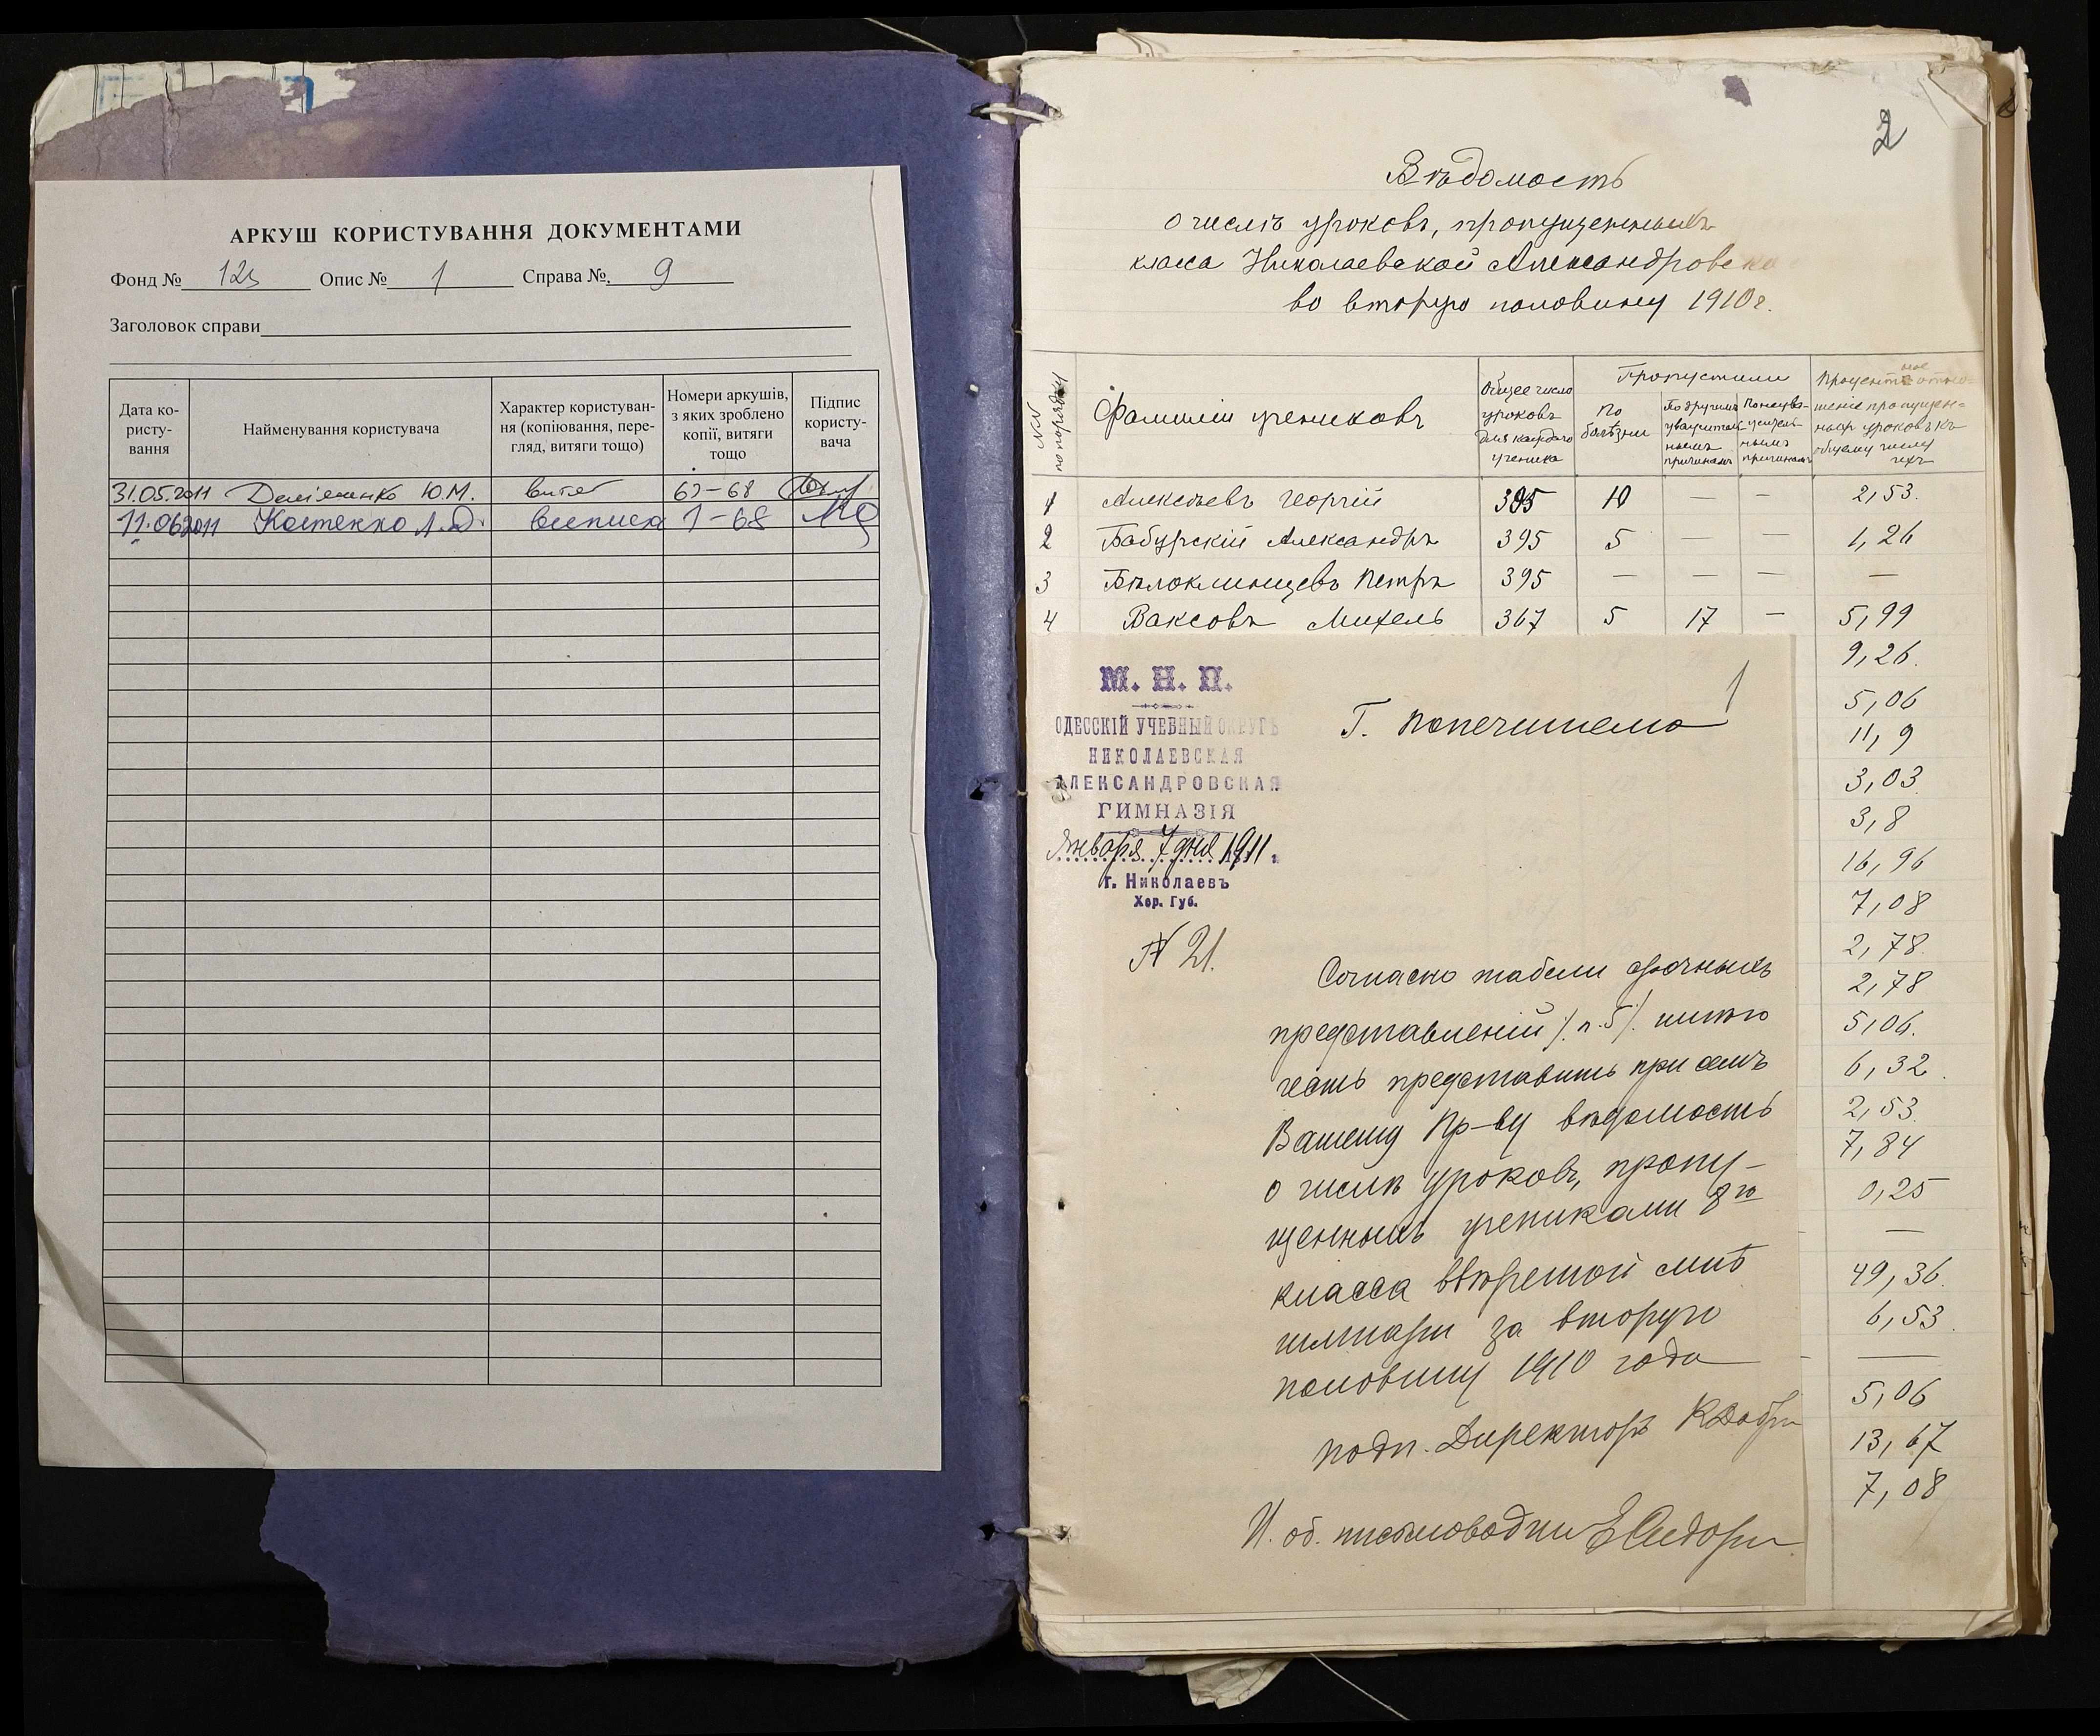 АРКУШ КОРИСТУВАННЯ ДОКУМЕНТАМИ
Фонд № 123 Опис № 1 Справа № 9
Заголовок справи
Дата користування
Найменування користувача
Характер користування (копіювання, перегляд, витяги тощо)
Номери аркушів, з яких зроблено копії, витяги тощо
Підпис користувача
31.05.2011 Ю.М. витяг 67-68
11.06.2011 Костенко Л.Д. виписка 1-68
2
Вѣдомость
о числѣ уроковъ, пропущенныхъ
класса Николаевской Александровско
во вторую половину 1910 г.
№№ по порядку
Фамиліи учениковъ
Общее число уроковъ для каждаго ученика
Пропустили
По болѣзни
По другимъ уважительнымъ причинамъ
По неуважительнымъ причинамъ
Процентное отношеніе пропущенныхъ уроковъ къ общему числу ихъ
1 Алексѣевъ Георгій 395 10 — — 2,53.
2 Бабурскій Александръ 395 5 — — 1,26
3 Бѣлоклинцевъ Петръ 395 — — — —
4 Ваксовъ Михель 367 5 17 — 5,99
9,26.
5,06
11,9
3,03.
3,8
16,96
7,08
2,78.
2,78
5,06.
6,32.
2,53.
7,84
0,25
—
49,36.
6,53.
—
5,06
13,67
7,08
1
М. Н. П.
ОДЕССКІЙ УЧЕБНЫЙ ОКРУГЪ
НИКОЛАЕВСКАЯ
АЛЕКСАНДРОВСКАЯ
ГИМНАЗІЯ
Января 7 дня 1911.
г. Николаевъ
Хер. Губ.
N 21.
Г. Попечителю
Согласно табели срочныхъ
представленій /п. 5/. имѣю
честь представить при семъ
Вашему Пр-ву вѣдомость
о числѣ уроковъ, пропу-
щенныхъ учениками 8го
класса ввѣренной мнѣ
гимназіи за вторую
половину 1910 года
подп. Директоръ
И. об. письмоводит